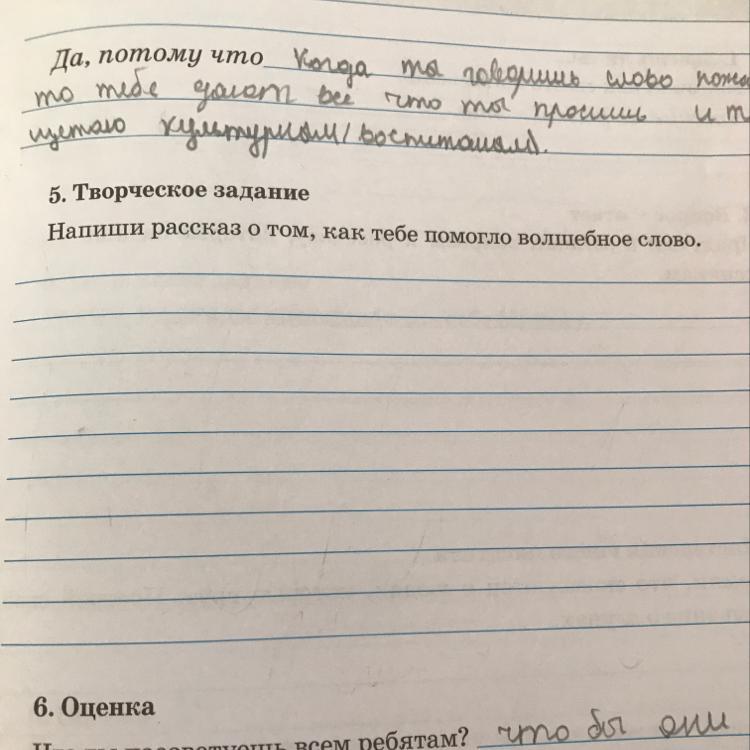 Да, потому что когда ты говоришь слово
то тебе делают все что ты просишь и
щетаю культурным/воспитаным).
5. Творческое задание
Напиши рассказ о том, как тебе помогло волшебное слово.
6. Оценка
всем ребятам? что бы они